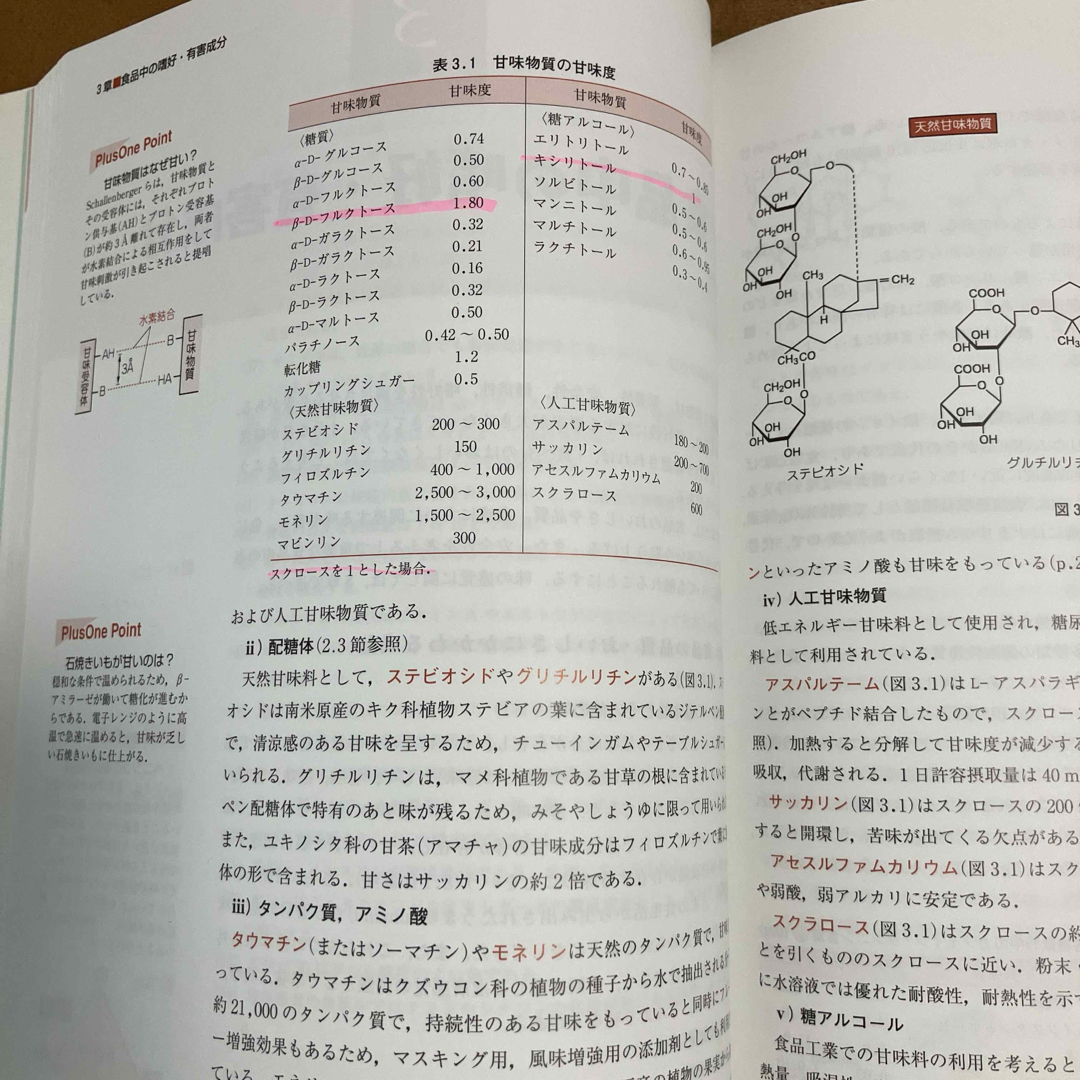 3章■食品中の嗜好・有害成分
表3.1 甘味物質の甘味度
甘味物質 甘味度 甘味物質 甘味度
〈糖質〉
α-D-グルコース 0.74
β-D-グルコース 0.50
α-D-フルクトース 0.60
β-D-フルクトース 1.80
α-D-ガラクトース 0.32
β-D-ガラクトース 0.21
α-D-ラクトース 0.16
β-D-ラクトース 0.32
α-D-マルトース 0.50
パラチノース 0.42～0.50
転化糖 1.2
カップリングシュガー 0.5
〈天然甘味物質〉
ステビオシド 200～300
グリチルリチン 150
フィロズルチン 400～1,000
タウマチン 2,500～3,000
モネリン 1,500～2,500
マビンリン 300
〈糖アルコール〉
エリトリトール 0.7～0.85
キシリトール 1
ソルビトール 0.5～0.6
マンニトール 0.5～0.6
マルチトール 0.6～0.95
ラクチトール 0.3～0.4
〈人工甘味物質〉
アスパルテーム 180～200
サッカリン 200～700
アセスルファムカリウム 200
スクラロース 600
スクロースを1とした場合.
PlusOne Point
甘味物質はなぜ甘い？
Schallenbergerらは，甘味物質と
その受容体には，それぞれプロト
ン供与基(AH)とプロトン受容基
(B)が約3Å離れて存在し，両者
が水素結合による相互作用をして
甘味刺激が引き起こされると提唱
している．
水素結合
甘味受容体
AH
B
3Å
B
HA
甘味物質
PlusOne Point
石焼きいもが甘いのは？
穏和な条件で温められるため，β-
アミラーゼが働いて糖化が進むか
らである．電子レンジのように高
温で急速に温めると，甘味が乏し
い石焼きいもに仕上がる．
および人工甘味物質である．
ii）配糖体(2.3節参照)
天然甘味料として，ステビオシドやグリチルリチンがある(図3.1)．
オシドは南米原産のキク科植物ステビアの葉に含まれているジテルペン
で，清涼感のある甘味を呈するため，チューインガムやテーブルシュガー
いられる．グリチルリチンは，マメ科植物である甘草の根に含まれている
ペン配糖体で特有のあと味が残るため，みそやしょうゆに限って用いられ
また，ユキノシタ科の甘茶(アマチャ)の甘味成分はフィロズルチンで
体の形で含まれる．甘さはサッカリンの約2倍である．
iii）タンパク質，アミノ酸
タウマチン(またはソーマチン)やモネリンは天然のタンパク質で，
っている．タウマチンはクズウコン科の植物の種子から水で抽出される
約21,000のタンパク質で，持続性のある甘味をもっていると同時に
ー増強効果もあるため，マスキング用，風味増強用の添加剤としても
ている．
の植物の果実から
天然甘味物質
CH₂OH
O
OH
OH
CH₂OH
O
OH
OH
OH
CH₃
=CH₂
H
CH₃CO
CH₂OH
O
OH
OH
OH
ステビオシド
COOH
O
OH
OH
COOH
O
OH
OH
OH
CH₃
グルチルリチ
図3
ンといったアミノ酸も甘味をもっている(p.2
iv）人工甘味物質
低エネルギー甘味料として使用され，糖尿
料として利用されている．
アスパルテーム(図3.1)はL-アスパラギ
ンとがペプチド結合したもので，スクロー
照)．加熱すると分解して甘味度が減少する
吸収，代謝される．1日許容摂取量は40 m
サッカリン(図3.1)はスクロースの200
すると開環し，苦味が出てくる欠点がある
アセスルファムカリウム(図3.1)はスク
や弱酸，弱アルカリに安定である．
スクラロース(図3.1)はスクロースの約
とを引くもののスクロースに近い．粉末・
に水溶液では優れた耐酸性，耐熱性を示す
v）糖アルコール
食品工業での甘味料の利用を考えると
熱量，吸湿性